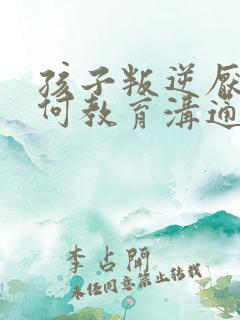 孩子叛逆厌
何教育溝通
李占開
未经同意禁止转载